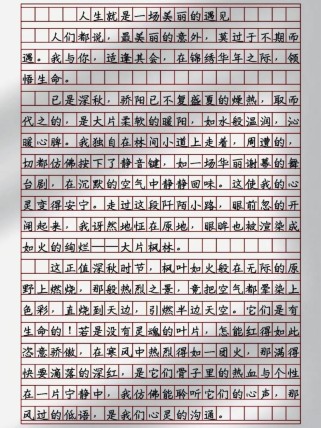 人生就是一场美丽的遇见
人们都说，最美丽的意外，莫过于不期而
遇。我与你，适逢其会，在锦绣华年之际，领
悟生命。
已是深秋，骄阳已不复盛夏的燥热，取而
代之的，是大片柔软的暖阳，如水般温润，沁
暖心脾。我独自在林间小道上走着，周遭的，
切都仿佛按下了静音键，如一场华丽谢幕的舞
台剧，在沉默的空气中静静回味。这使我的心
灵变得安宁。走过这段阡陌小路，眼前忽的开
阔起来，我讶然地怔在原地，眼眸也被渲染成
如火的绚烂——大片枫林。
这正值深秋时节，枫叶如火般在无际的原
野上燃烧，那般热烈之景，竟把空气都晕染上
色彩，直烧到天边，引燃半边天空。它们是有
生命的！若是没有灵魂的叶片，怎能红得如此
恣意骄傲，在寒风中热烈得如一团火，那满得
快要滴落的深红，是它们骨子里的热血与个性
在一片宁静中，我仿佛能聆听它们的心声，那
风过的低语，是我们心灵的沟通。